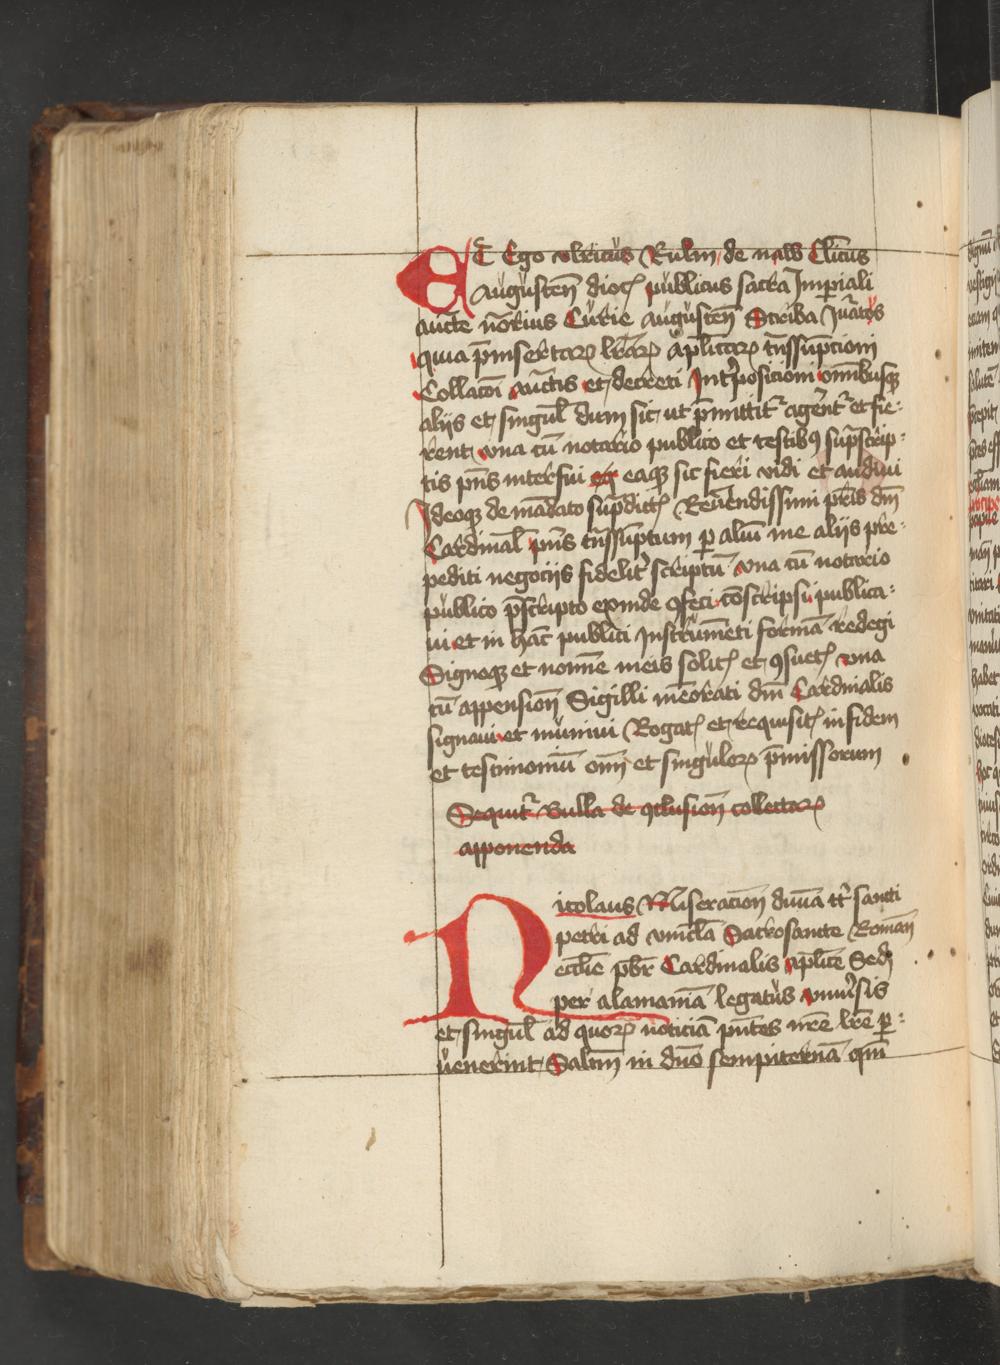 Et Ego vlricus Kulm de naw Cl̄icus
Augusten̄ dioc̄ publicus sacra Imperiali
aucte n̄orius Curie augusten̄ Scriba Iur̄atus
quia p̄insertar̄ lr̄ar̄ ap̄licar̄ tn̄ssūpcioni
Collacōi auctis et decreti Int̄posicioni omībusq̄
alijs et singul̄ dum sic ut p̄mittit̄ agerent̄ et fie⸗
rent vna cū notario publico et testibꝯ sup̄scrip⸗
tis pn̄s interfui eaq̄ sic fieri vidi et audiui
Ideoq̄ de mādato sup̄dict̄ Reuerendissimi pr̄is dn̄i
Cardinal̄ pn̄s tn̄ssūptum ꝑ aliū me alijs pre⸗
pediti negocijs fidelit̄ scriptū vna cū notario
publico p̄scripto exinde ꝯfeci cōscripsi publica⸗
ui et in hāc publici Instrumēti formā redegi
Signoq̄ et nomīe meis solit̄ et ꝯsuet̄ vna
cū appension̄ Sigilli mēorati dn̄i Cardinalis
signaui et muniui Rogat̄ et requisit̄ in fidem
et testimoniū om̄i et singulor̄ p̄missorum
Sequit̄ Bulla de ꝯclusion̄ collectar̄
apponenda
Nicolaus Miseracion̄ diuīa tt̄ sancti
petri ad vincl̄a Sacrosancte Roman̄
ecclīe pb̄r Cardinalis ap̄lice Sed̄
per alamaniā legatus vniūsis
et singul̄ ad quor̄ noticiā pn̄tes nr̄e lr̄e ꝑ⸗
uenerint Saltm̄ in dn̄o sempiternā qm̄